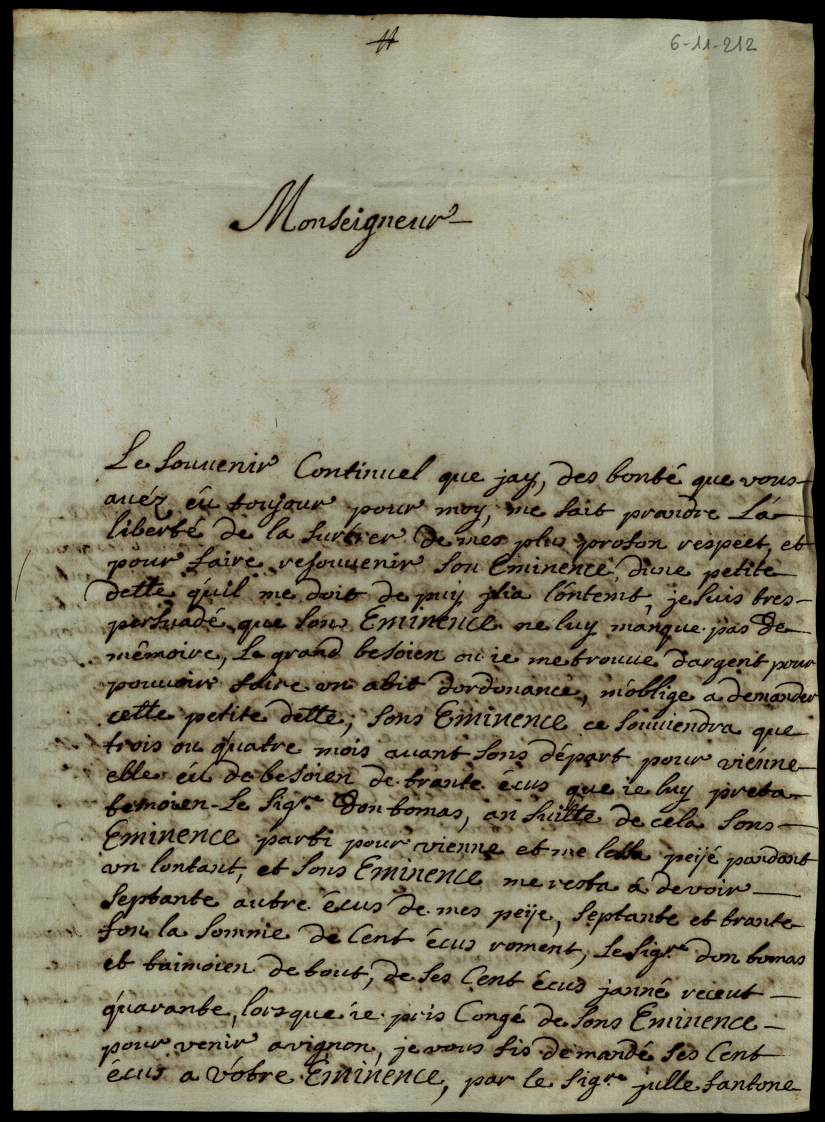 #
6-11-212
Monseigneur
Le Souvenir Continuel que jay, des bonté que vous
avéz éü toujour pour moy, me fait prandre La
liberté de la surtirer de mes plu profon respéct, et
pour faire resouvenir son Eminence, d'une petite
dette qu'il me doit de puy jlia lontemt, je suis tres
persuadé que sons Eminence ne luy manque pas de
mêmoire, Le grand besoien ou ie me trouve dargent pour
pouvoir faire un abit dordonance, m'oblige a demander
cette petite dette, sons Eminence ce souviendra que
trois ou quatre mois avant sons départ pour viénne
elle éü de besoien de trante écus que ie luy preta
temoien Le sigre don tomas, an suitte de cela sons
Eminence parti pour vienne et me peije pandant
un lontant, et sons Eminence me resta á devoir
septante autre écus de mes peije, septante et trante
fon la somme de Cent écus roment, Le sigre don tomas
et taimoien de tout, de ses Cent écus janné receut
quarante, lorsque ie pris Congé de sons Eminence
pour venir avignon, je vous fis demandé ses Cent
écus a vótre Eminence, par le sigre julle santone